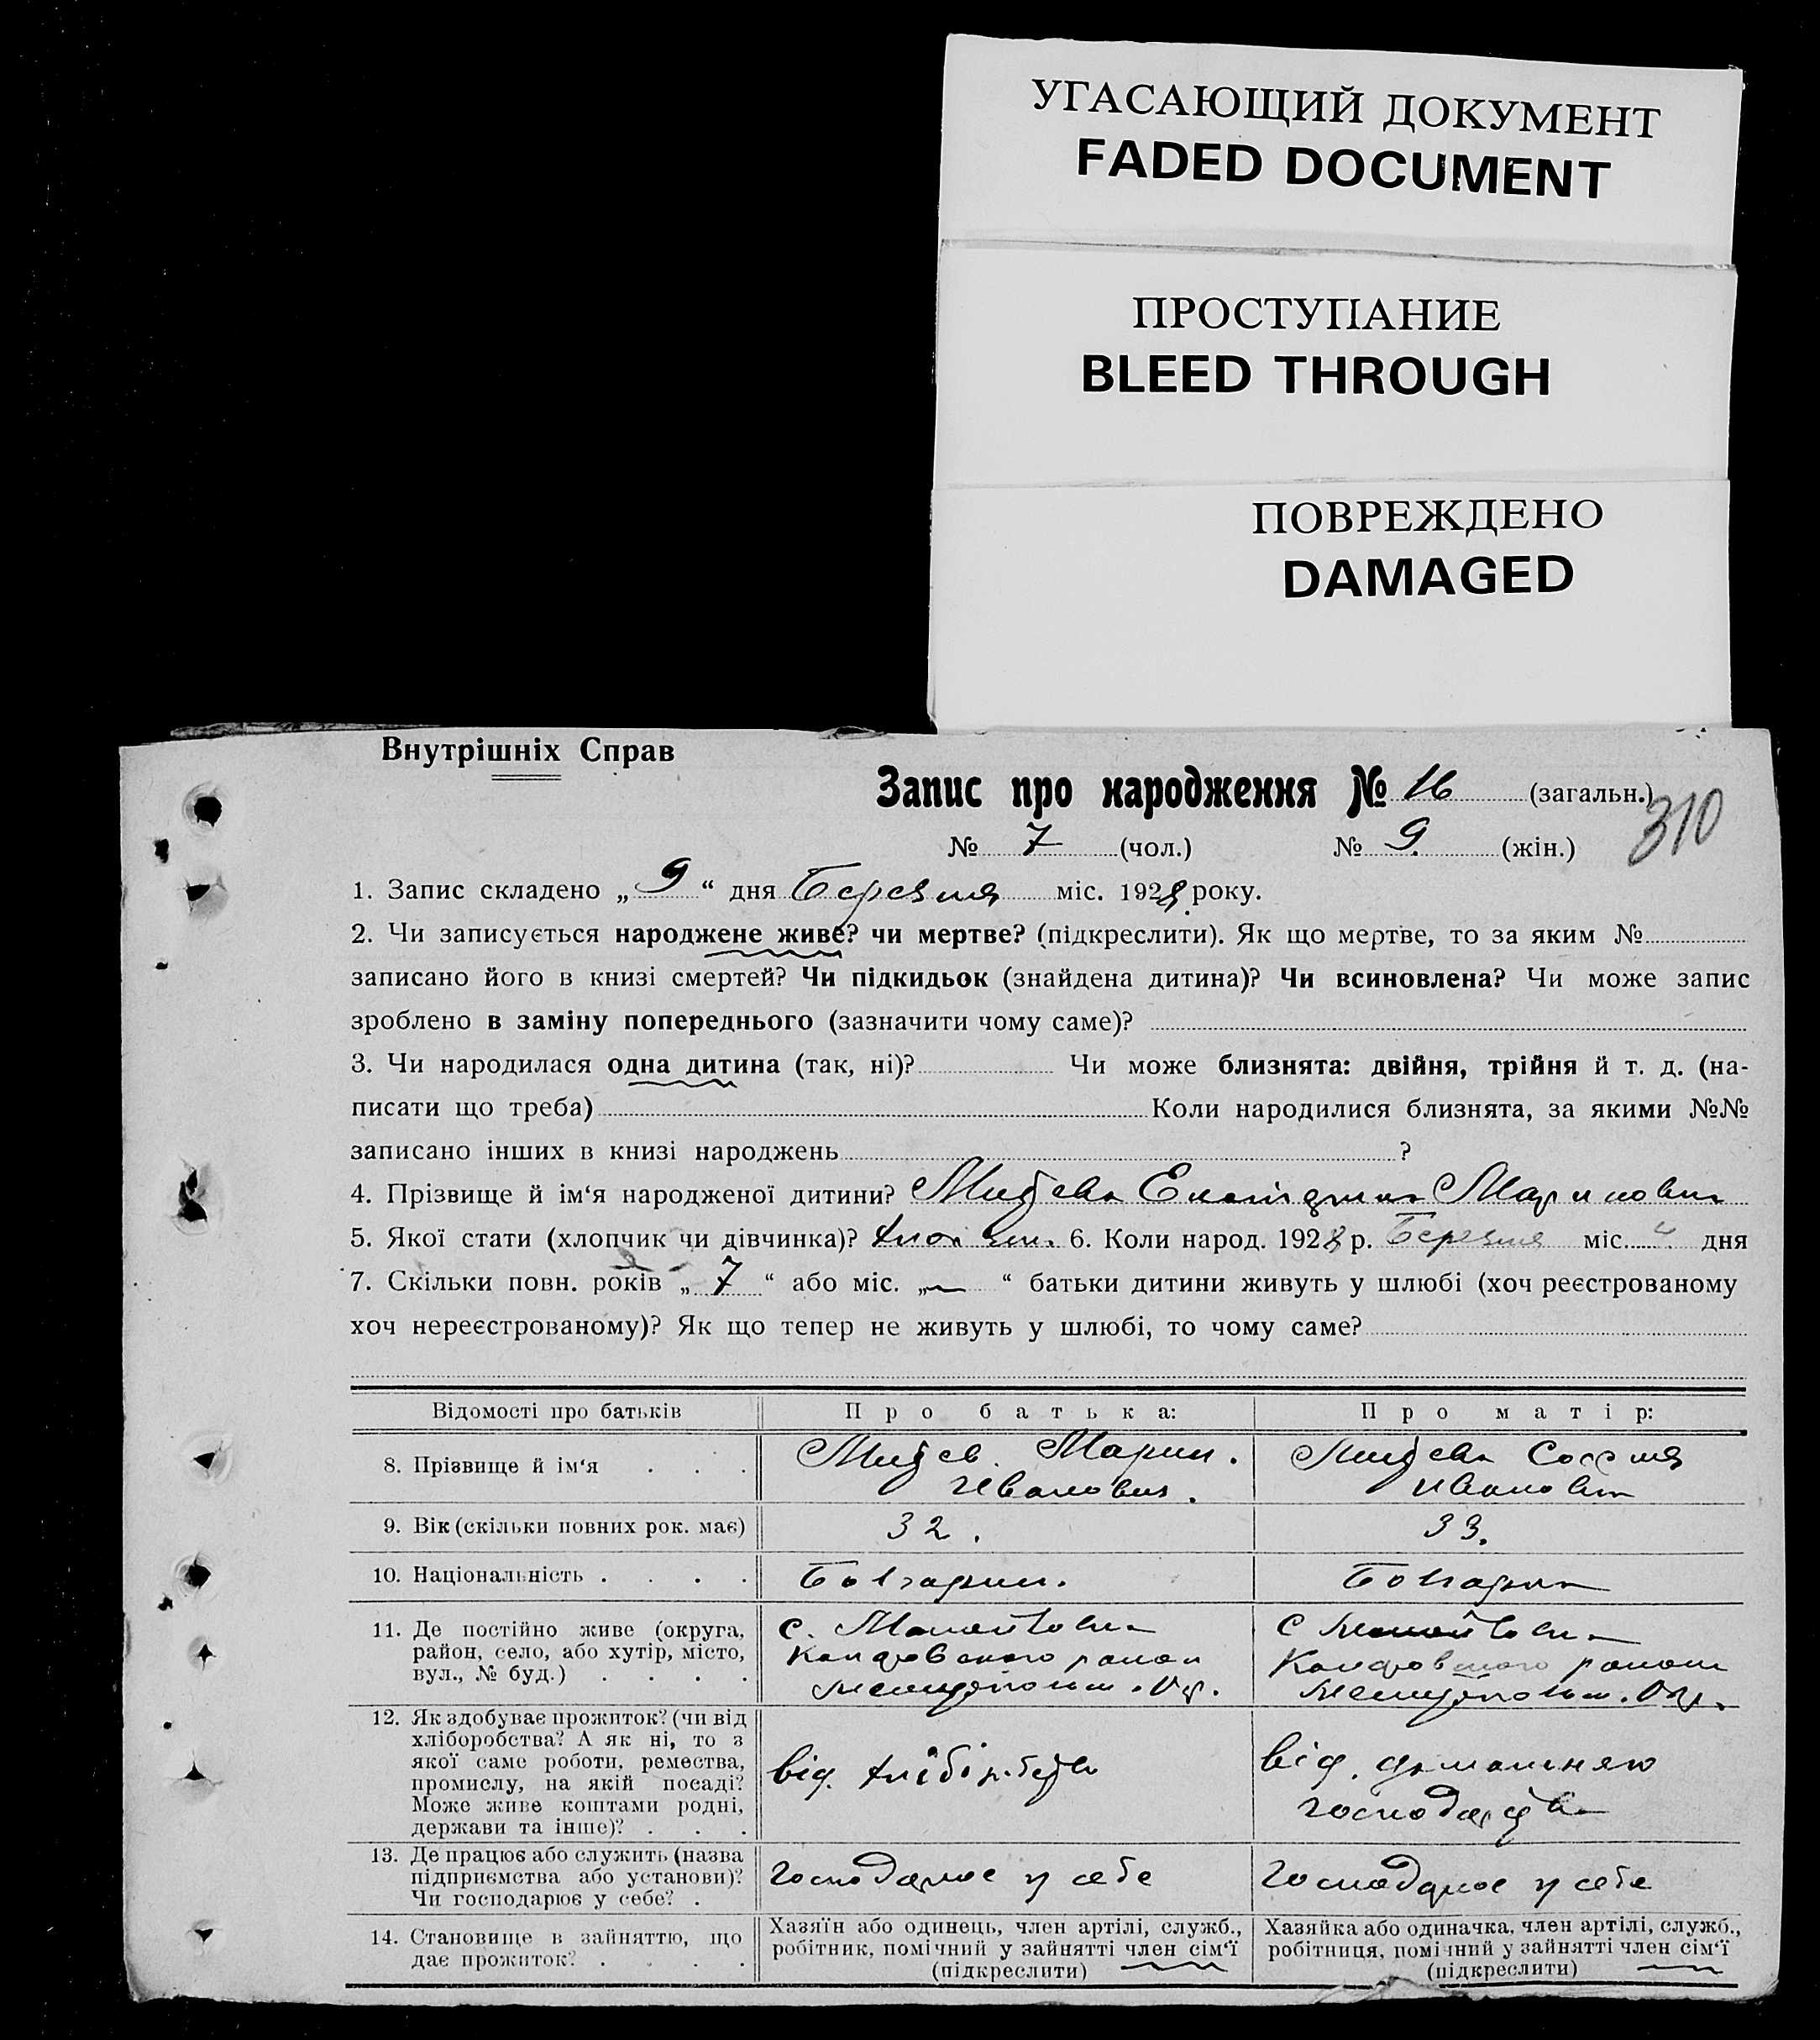 УГАСАЮЩИЙ ДОКУМЕНТ
FADED DOCUMENT
ПРОСТУПАНИЕ
BLEED THROUGH
ПОВРЕЖДЕНО
DAMAGED
Внутрішніх Справ
Запис про народження № 16 (загальн.)
310
№ 7 (чол.) № 9. (жін.)
1. Запис складено „ 9 “ дня Березня міс. 1928 року.
2. Чи записується народжене живе? чи мертве? (підкреслити). Як що мертве, то за яким №
записано його в книзі смертей? Чи підкидьок (знайдена дитина)? Чи всиновлена? Чи може запис
зроблено в заміну попереднього (зазначити чому саме)?
3. Чи народилася одна дитина (так, ні)? Чи може близнята: двійня, трійня й т. д. (на-
писати що треба) Коли народилися близнята, за якими №№
записано інших в книзі народжень ?
4. Прізвище й ім‘я народженої дитини?
5. Якої стати (хлопчик чи дівчинка)? 6. Коли народ. 1928 р. Березня міс. дня
7. Скільки повн. років „ 7 “ або міс. „ — “ батьки дитини живуть у шлюбі (хоч реєстрованому
хоч нереєстрованому)? Як що тепер не живуть у шлюбі, то чому саме?
Відомості про батьків Про батька: Про матір:
8. Прізвище й ім‘я . . . Марин. Иванович.
9. Вік (скільки повних рок. має) 32. 33.
10. Національність . . . . Болгарин. Болгарка
11. Де постійно живе (округа,
район, село, або хутір, місто,
вул., № буд.) . . . .
с.
района
с
района
12. Як здобуває прожиток? (чи від
хліборобства? А як ні, то з
якої саме роботи, ремества,
промислу, на якій посаді?
Може живе коштами родні,
держави та інше)? . . .
від. хліборобства
від. домашняго
господарства
13. Де працює або служить (назва
підприємства або установи)?
Чи господарює у себе? .
господарює у себе
господарює у себе
14. Становище в зайняттю, що
дає прожиток? . . . .
Хазяїн або одинець, член артілі, служб.,
робітник, помічний у зайнятті член сім‘ї
(підкреслити)
Хазяйка або одиначка, член артілі, служб.,
робітниця, помічний у зайнятті член сім‘ї
(підкреслити)